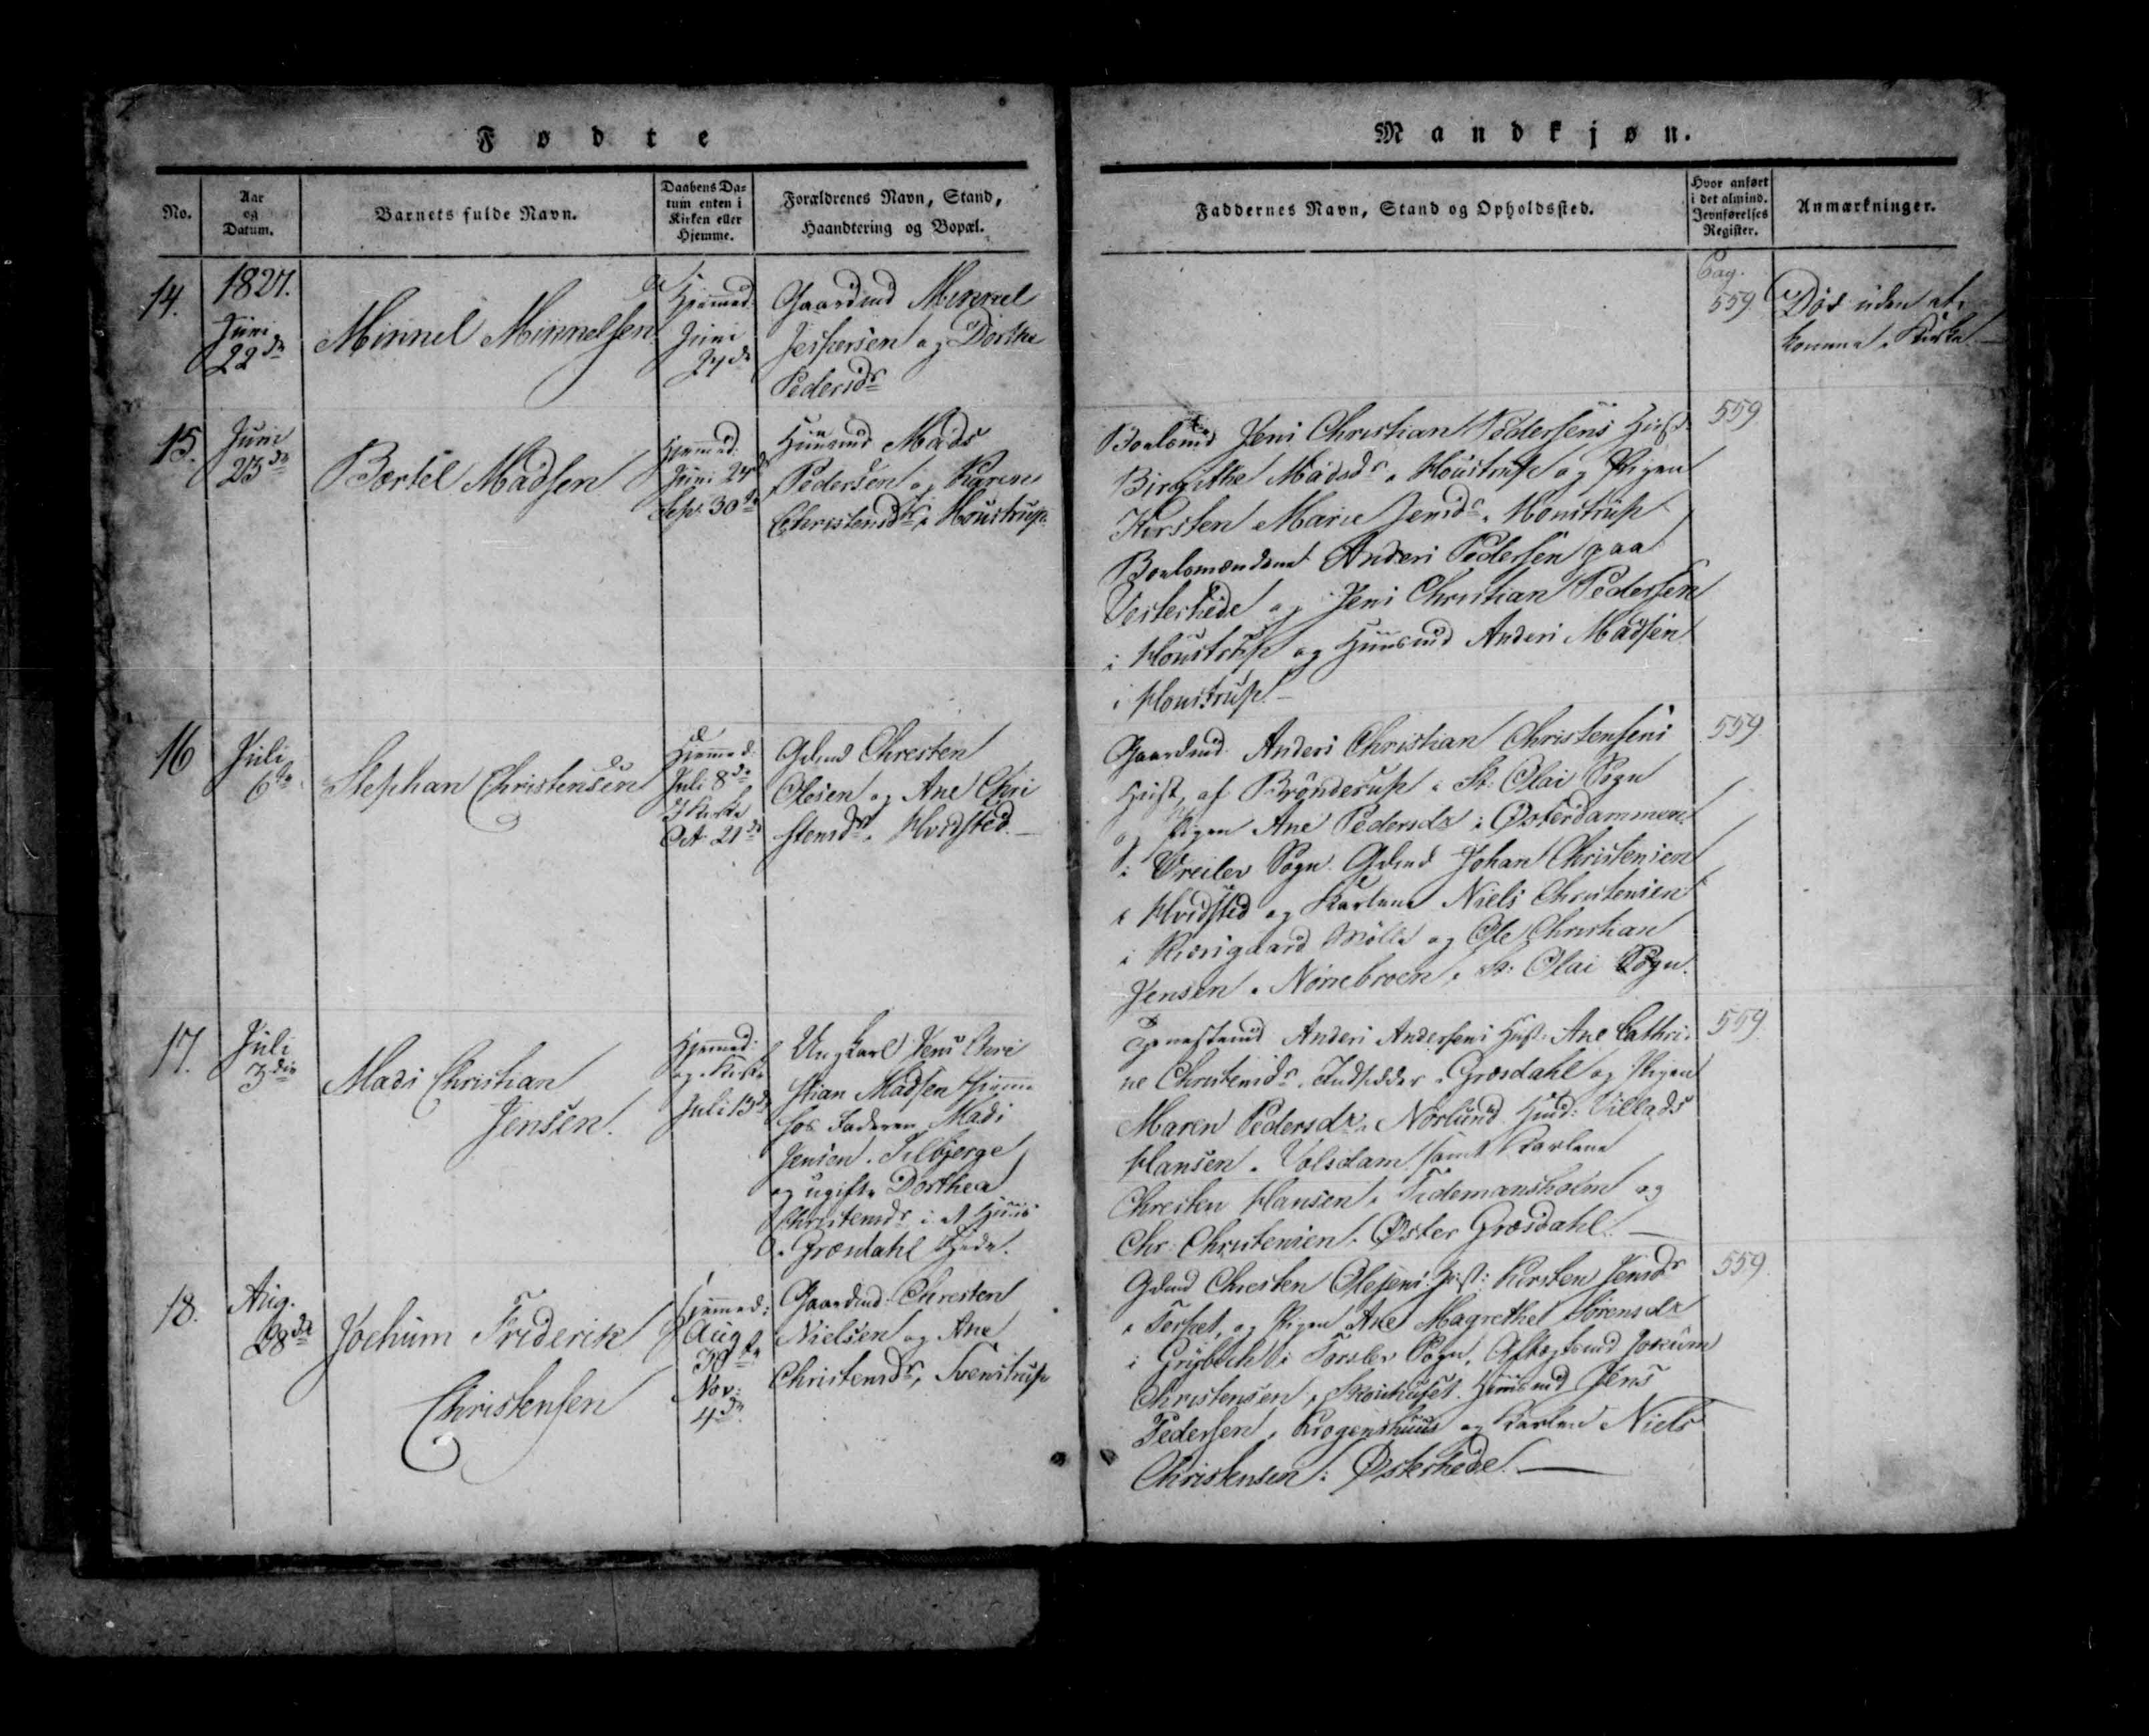 Fødte
Mandkjøn.
No.
Aar og Datum.
Barnets fulde Navn.
Daabens Da-
tum enten i
Kirken eller
Hjemme.
Forældrenes Navn, Stand,
Haandtering og Bopæl.
Faddernes Navn, Stand og Opholdssted.
Hvor anført
i det almind.
Jevnførelses
Register.
Anmærkninger.
14.
1827.
Juni
22de
Minnel Minnelsen
Hjemmed.
Juni
24de
Gaardmd Minnel
Jespersen og Dorthe
Pedersdr
Pag.
559
Død uden at
komme i Kirke
15.
Juni
23de
Bertel Madsen
Hjemmed:
Juni 24
Sept: 30te
Huusmd Mads
Pedersen og Karen
Christensdr i Moustrup
Boelsmd Jens Christian Pedersens Hust.
Birgithe Madsdr i Houstrup og Pigen
Kirsten Marie Jensdr i Moustrup
Boelsmændene Anders Pedersen paa
Vesterhede og Jens Christian Pedersen
i Houstrup og Huusmd Anders Madsen
i Houstrup.
559
16
Juli
6te
Stephan Christensen
Hjemmed:
Juli 8de
I Kirke
Oct 21de
Gdmd Chresten
Olesen og Ane Chri
stensdr i Hvidsted.
Gaardmd. Anders Christian Christensens
Hust, af Brønderup i St: Olai Sogn
og Pigen Ane Pedersdr i Østerdammen
i Vreilev Sogn. Gdmd Johan Christensen
i Hvidsted og Karlene Niels Christensen
i Mølle og Ole Christian
Jensen i Nørrebroen i St: Olai Sogn.
559
17.
Juli
3die
Mads Christian
Jensen.
Hjemmed:
og i Kirke
Juli 13de
Ungkarl Jens Chri
stian Madsen hjemme
hos Faderen Mads
Jensen i Filbjerge
og ugifte Dorthea
Christensdr i et Huus
i Græsdahl Hede.
Tjenestemd Anders Andersens Hust: Ane Cathri-
ne Christensdr, Indsidder i Græsdahl og Pigen
Maren Pedersdr i Nørlund Hmd: Villads
Hansen i Volsdam samt Karlene
Chresten Hansen i Tidemansholm og
Chr: Christensen i Øster Græsdahl.
559.
18.
Aug.
28de
Jochum Friderik
Christensen
Hjemmed:
Aug
30te
Nov:
4de
Gaardmd: Chresten
Nielsen og Ane
Christensdr, Svenstrup
Gdmd Chresten Olesens Hust: Kirsten Jensdr
i Terpet, og Pigen Ane Magrethe Sørensdr
i i Torslev Sogn, Aftægtsmd Jokum
Christensen i Huusmd Jens
Pedersen i Krogenshuus og Karlen Niels
Christensen i Østerhede.
559.